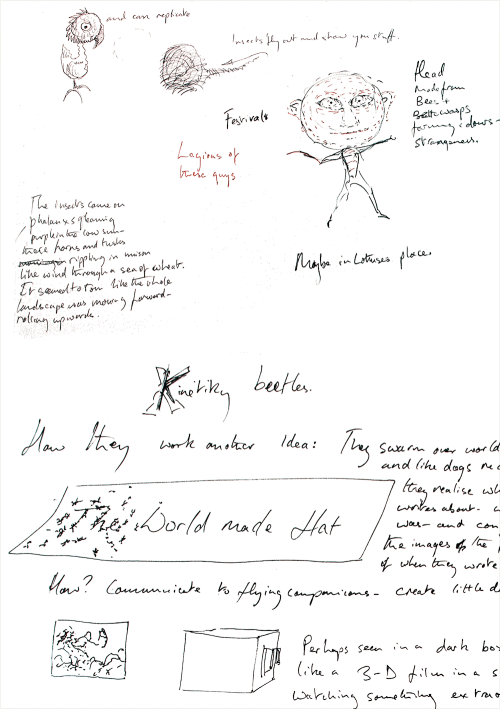 and can replicate
Insects fly out and show you stuff.
Head
Made from
Bees +
wasps
forming clowns-
strangeness.
Festivals
Legions of
these guys
The insects came on
phalanxes gleaming
purple in the low sun-
their horns and tusks
rippling in unison
like wind through a sea of wheat.
It seemed to Tom like the whole
landscape was moving forward-
rolling upwards.
Maybe in Lotuses place
Kinetiky beetles.
How they work another idea: They swarm over world
and like dogs
they realise
writes about-
was- and
the images of the
of when they wrote
World made Hat
How? Communicate to flying companions- create little
Perhaps seen in a dark
like a 3-D film in a
watching something